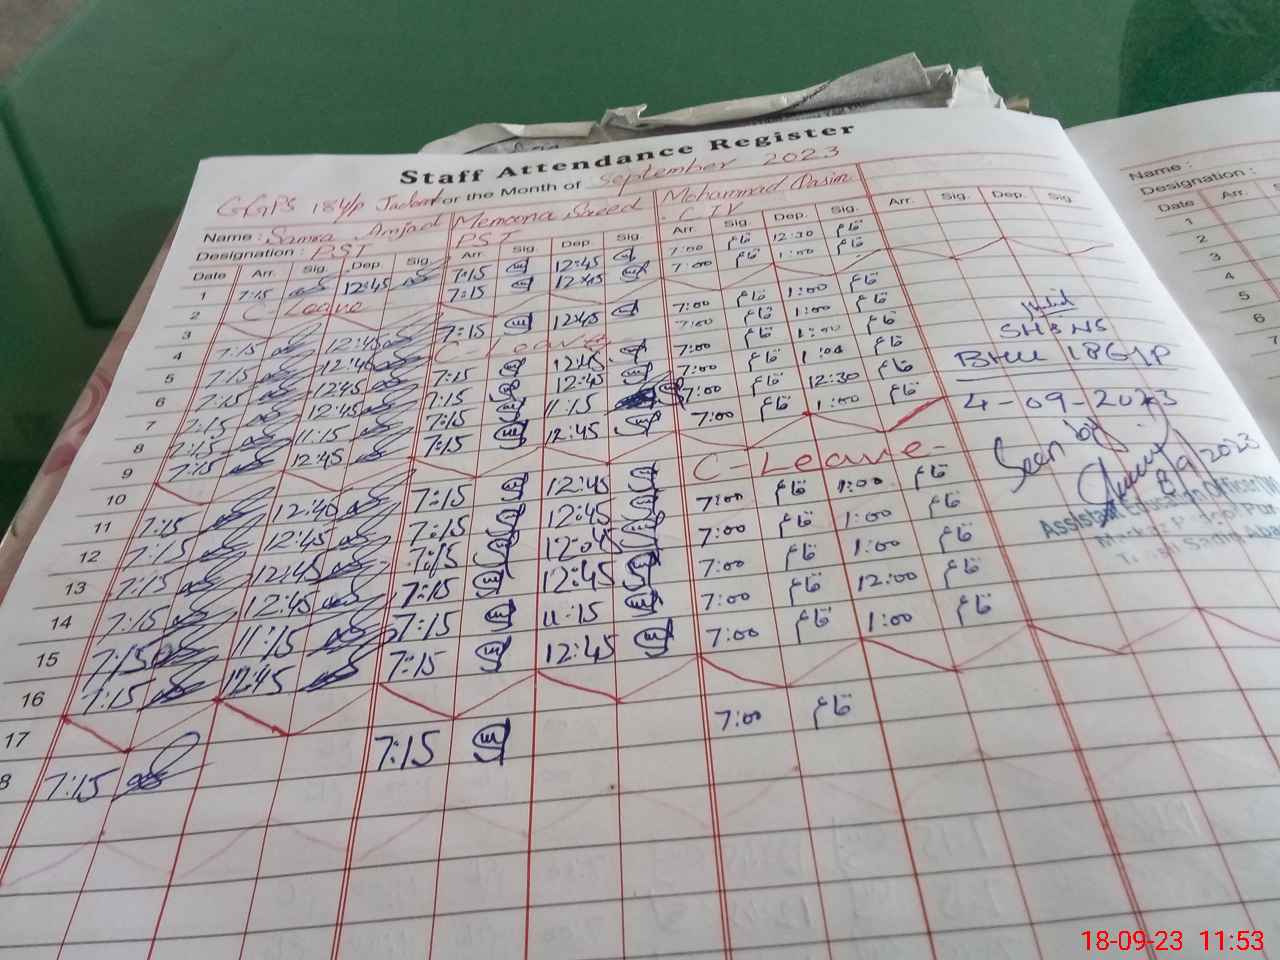 Staff Attendance Register
GGPS 184/P Jadeed For the Month of September 2023
Name : Samra Amjad Memoona Saeed Mohammad Qasim
Designation : PST PST C IV
Date Arr. Sig. Dep. Sig. Arr. Sig. Dep. Sig. Arr. Sig. Dep. Sig. Arr. Sig. Dep. Sig.
1 7:15 12:45 7:15 12:45 7:00 قاسم 12:30 قاسم
2 C-Leave 7:15 12:45 7:00 قاسم 1:00 قاسم
3
4 7:15 12:45 7:15 12:45 7:00 قاسم 1:00 قاسم
5 7:15 12:45 C-Leave 7:00 قاسم 1:00 قاسم
6 7:15 12:45 7:15 12:45 7:00 قاسم 1:00 قاسم
7 7:15 12:45 7:15 12:45 7:00 قاسم 1:00 قاسم
8 7:15 11:15 7:15 11:15 7:00 قاسم 12:30 قاسم
9 7:15 12:45 7:15 12:45 7:00 قاسم 1:00 قاسم
10
11 7:15 12:45 7:15 12:45 C-Leave-
12 7:15 12:45 7:15 12:45 7:00 قاسم 1:00 قاسم
13 7:15 12:45 7:15 12:45 7:00 قاسم 1:00 قاسم
14 7:15 12:45 7:15 12:45 7:00 قاسم 1:00 قاسم
15 7:15 11:15 7:15 11:15 7:00 قاسم 12:00 قاسم
16 7:15 12:45 7:15 12:45 7:00 قاسم 1:00 قاسم
17
8 7:15 7:15 7:00 قاسم
SH&NS
BHU 186/P
4-09-2023
Seen by
8/9/2023
Assistant Education Officer
Name :
Designation :
Date Arr.
1
2
3
4
5
6
7
18-09-23 11:53